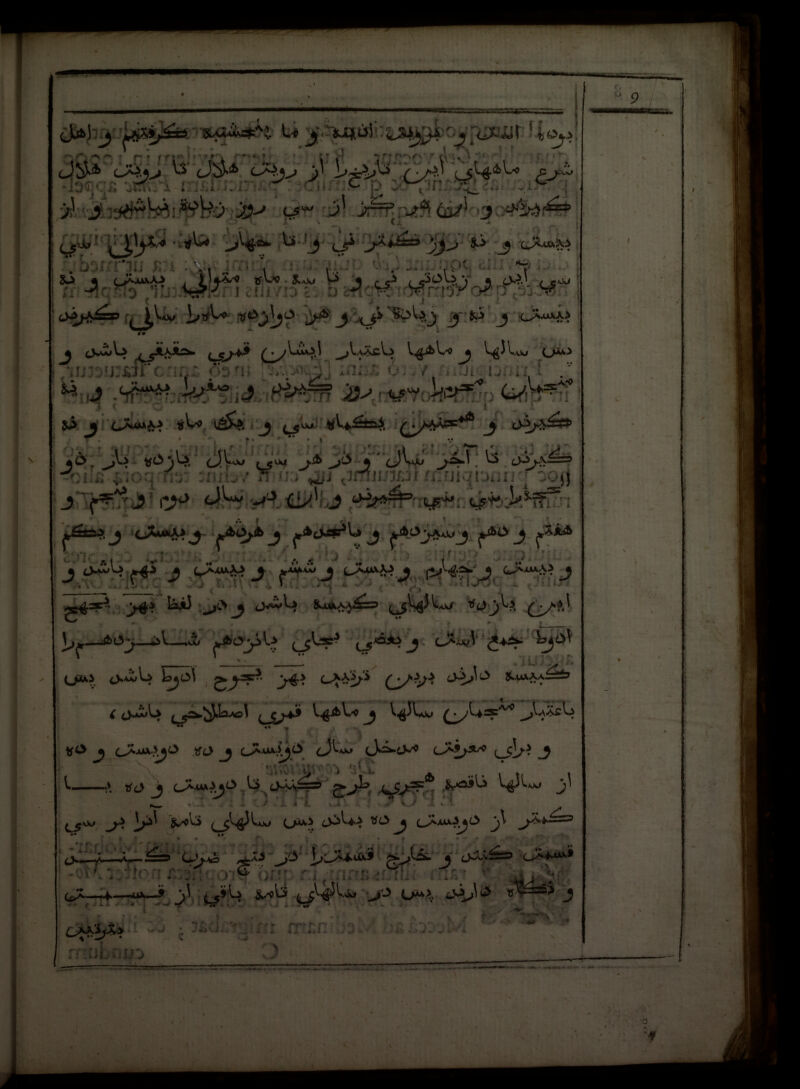 و تا
شرع ماههای این تاریخ را از رویت هلال تا رویت هلال
کیرند و این هرکز از سی روز زیاده نباشد و از
بیست و نه روز کمتر نی و تا چهار ماه متوالی سی
سی آید و زیاده نی و تا سه ماه متوالی بیست و نه
بیست و نه و زیاده نی و هر دوازده ماه را سالی کیرند
پس سالها و ماهها باعتبار ایشان قمری حقیقی باشد و
منجمان محرم را سی روز کیرند و صفر را بیست و نه
کیرند و همچنین یکماه سی و یک ماه بیست و نه
کیرند تا آخر سال و در هر سی سال یازده بار ذی
الحجه را سی کیرند و این در سال دوم و پنجم و
هفتم و دهم و سیزدهم و پانجدهم و هژدهم و بیست و یکم
و بیست و چهارم و بیست و ششم و بیست و نهم باشد و
این یازده سالهای کبیسه باشد و در لفظ بهز یجهح
ادوط جمع است و بعضی بجای پانزدهم شانزدهم را
کبیسه دارند برین ترتیب بهز یجوح ادوط باشد پس
باعتبار منجمان سالها و ماهها قمری اصطلاحی باشد ؛
و برای معرفت مدخل سال دویست و ده دویست و ده
از سالها ناقصه هجری طرح کنند تا دویست و ده یا
کمتر از دویست و ده بماند پس سالهای تامه انرا بر سی
قسمت کنند و خارج قسمت را در پنج ضرب کنند
و نکاه دارند پس در سالهای تامه باقی از قسمت
بنکرند
9